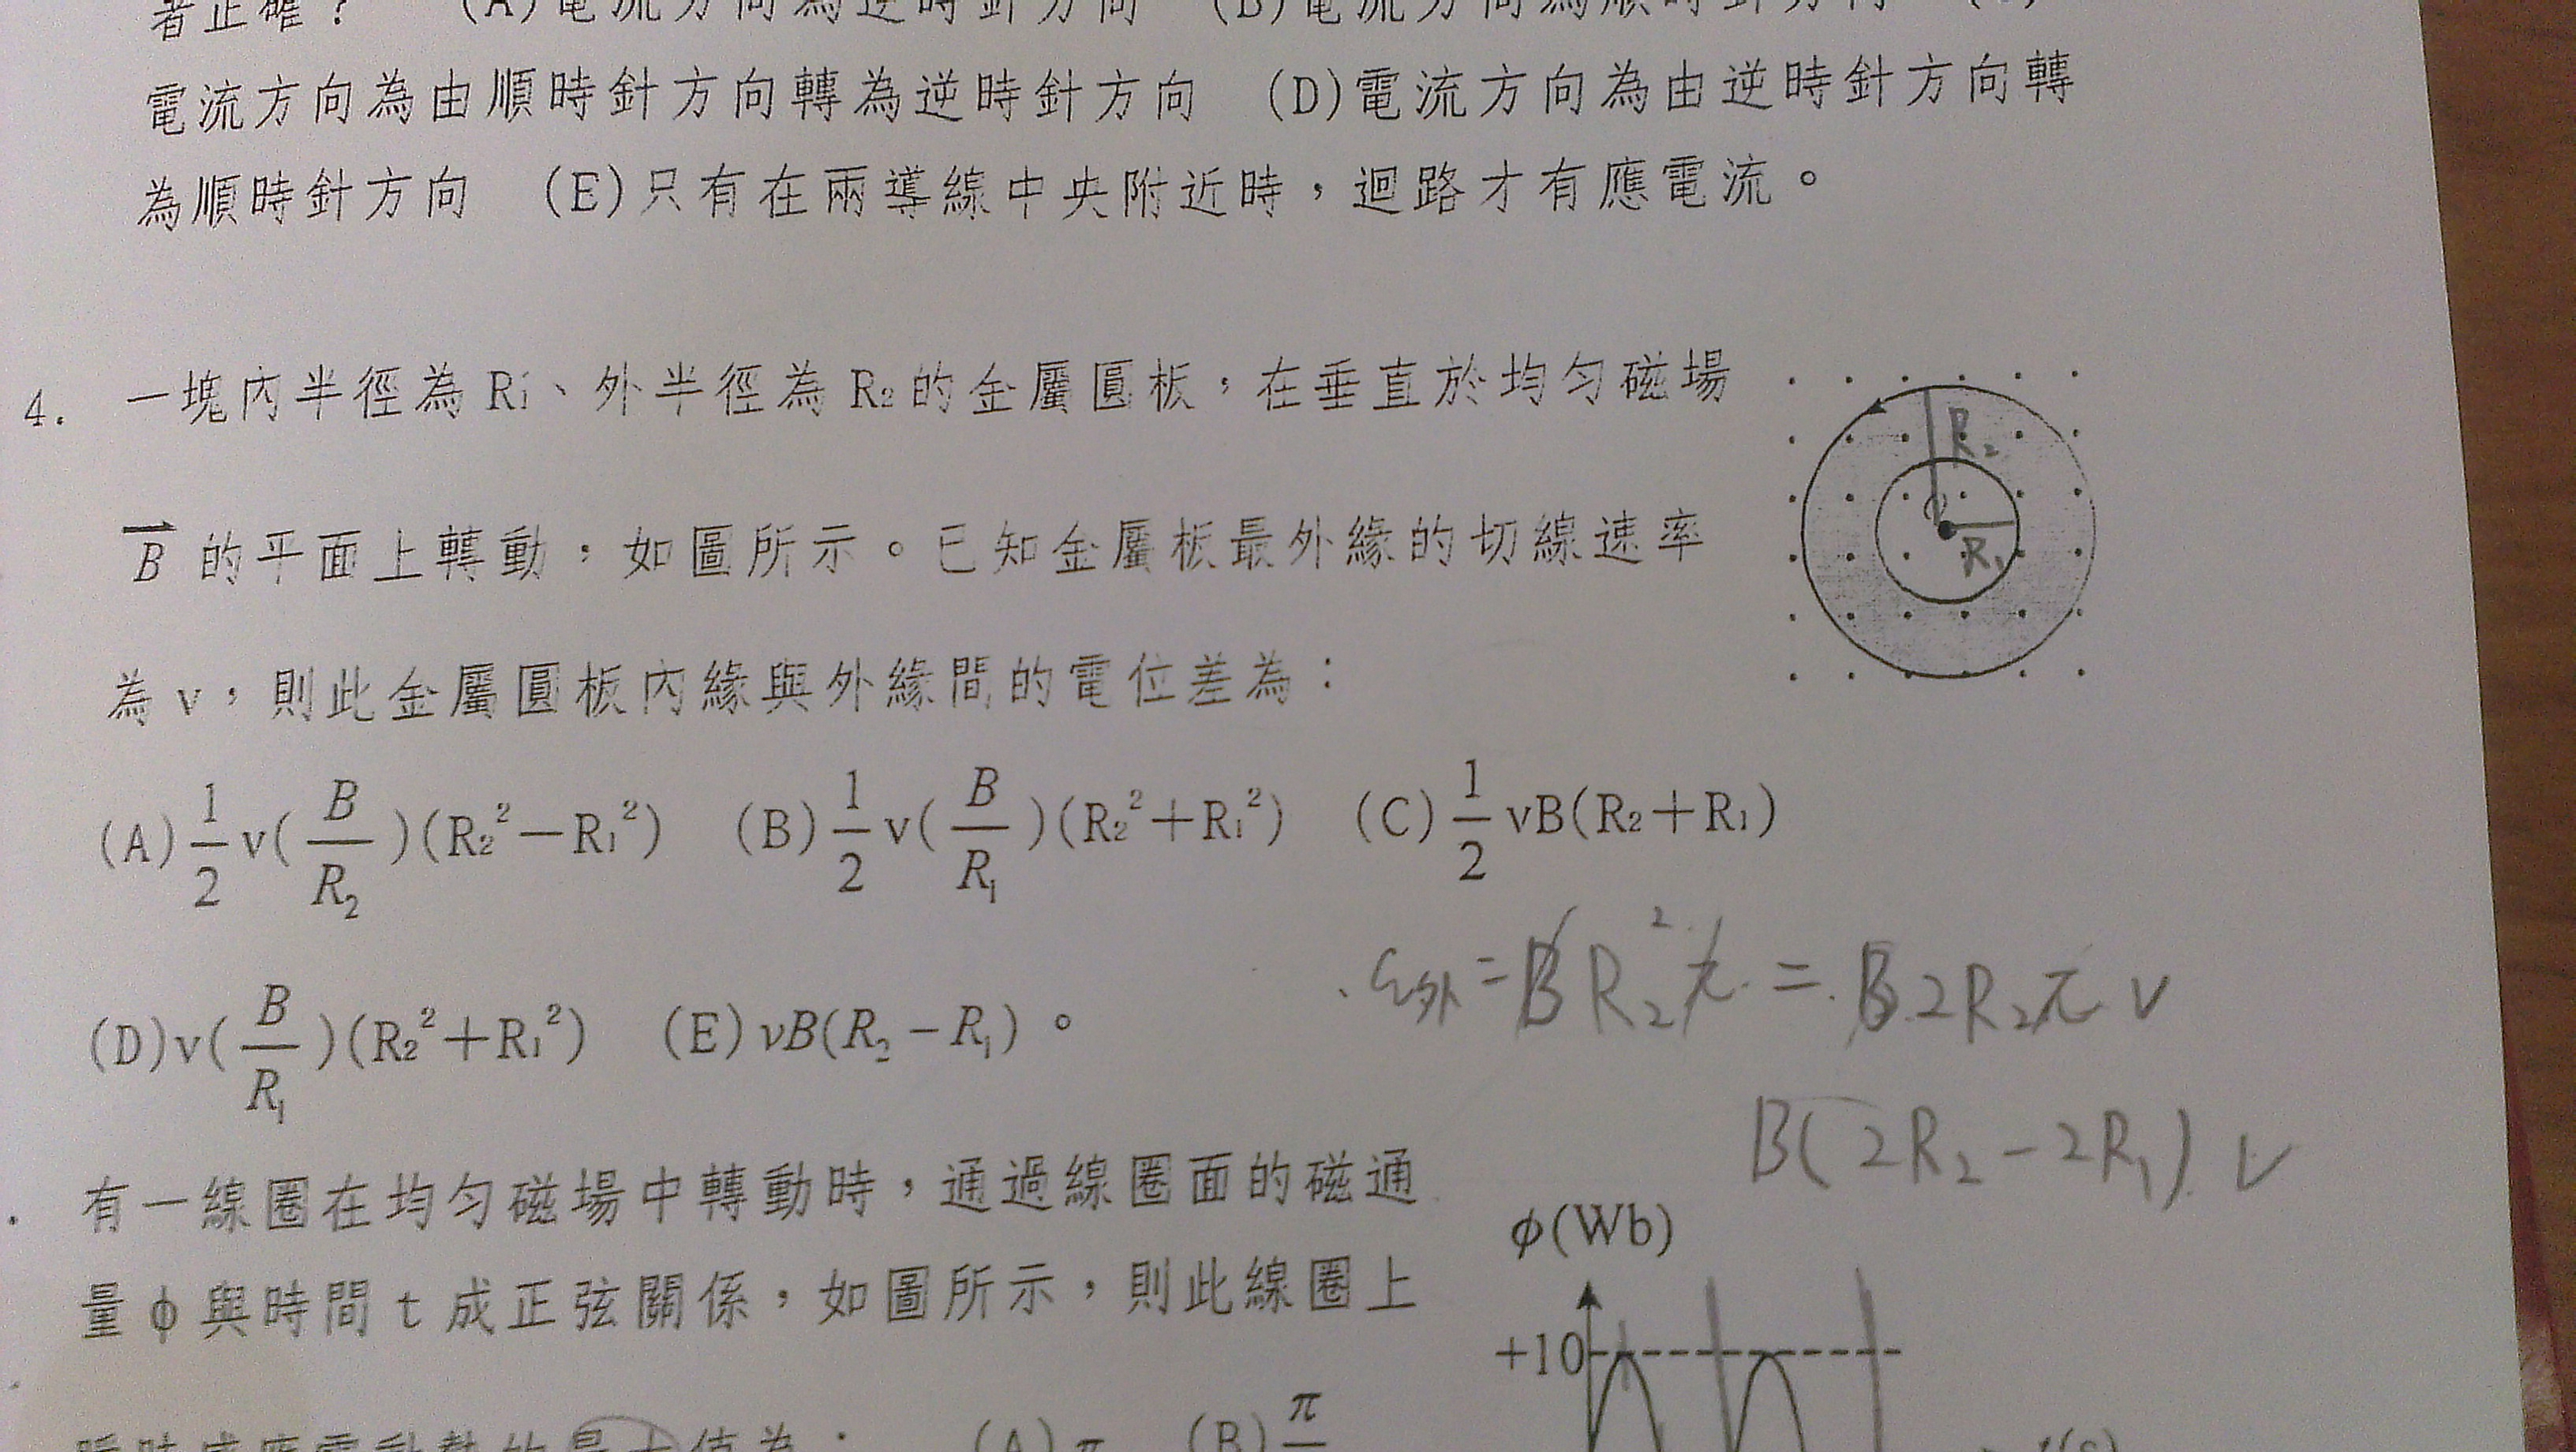 者正確？ (A)電流方向為逆時針方向 (B)電流方向為順時針方向
電流方向為由順時針方向轉為逆時針方向 (D)電流方向為由逆時針方向轉
為順時針方向 (E)只有在兩導線中央附近時，迴路才有應電流。
4. 一塊內半徑為R1、外半徑為R2的金屬圓板，在垂直於均勻磁場
B 的平面上轉動，如圖所示。已知金屬板最外緣的切線速率
為v，則此金屬圓板內緣與外緣間的電位差為：
R₂
R₁
(A) 1/2 v(B/R₂)(R₂²－R₁²) (B) 1/2 v(B/R₁)(R₂²＋R₁²) (C) 1/2 vB(R₂＋R₁)
(D) v(B/R₁)(R₂²＋R₁²) (E) vB(R₂－R₁)。
ε外 = B R₂² π = B 2R₂ π v
B(2R₂ - 2R₁) v
有一線圈在均勻磁場中轉動時，通過線圈面的磁通
量φ與時間t成正弦關係，如圖所示，則此線圈上
瞬時感應電動勢的最大值為： (A)π (B)π
φ(Wb)
+10
t(s)